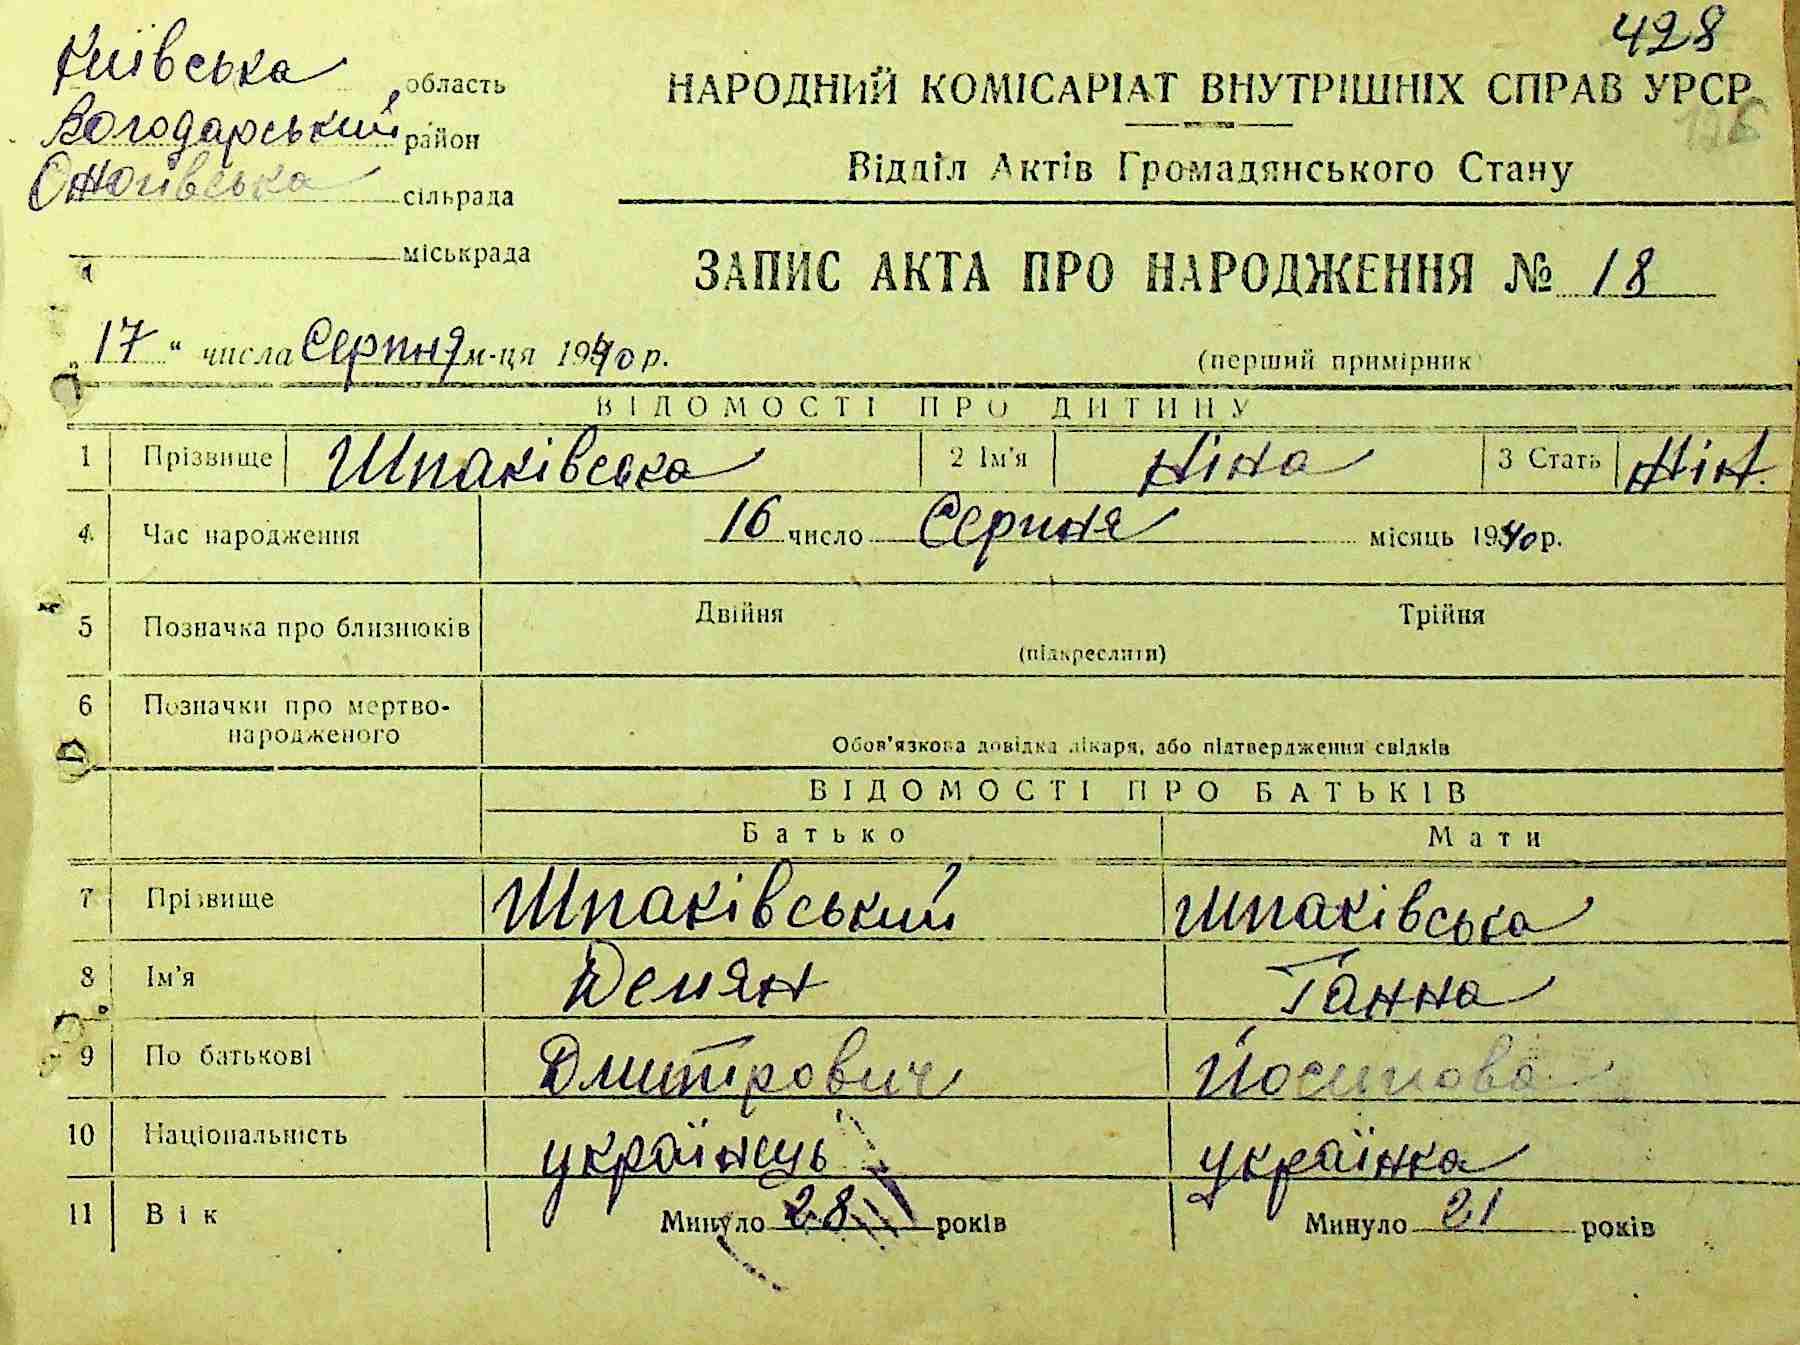 428
Київська область
НАРОДНИЙ КОМІСАРІАТ ВНУТРІШНІХ СПРАВ УРСР
Вогодарський район
Відділ Актів Громадянського Стану
сільрада
міськрада
ЗАПИС АКТА ПРО НАРОДЖЕННЯ № 18
„17“ числа Серпня м-ця 1940 р.
(перший примірник)
ВІДОМОСТІ ПРО ДИТИНУ
1 Прізвище Шпаківська 2 Ім'я Ніна 3 Стать жін.
4 Час народження 16 число Серпня місяць 1940 р.
5 Позначка про близнюків Двійня Трійня
(підкреслити)
6 Позначки про мертво-
народженого
Обов'язкова довідка лікаря, або підтвердження свідків
ВІДОМОСТІ ПРО БАТЬКІВ
Батько Мати
7 Прізвище Шпаківський Шпаківська
8 Ім'я Демян Ганна
9 По батькові Дмитрович Йосипова
10 Національність українець українка
11 Вік Минуло 28 років Минуло 21 років